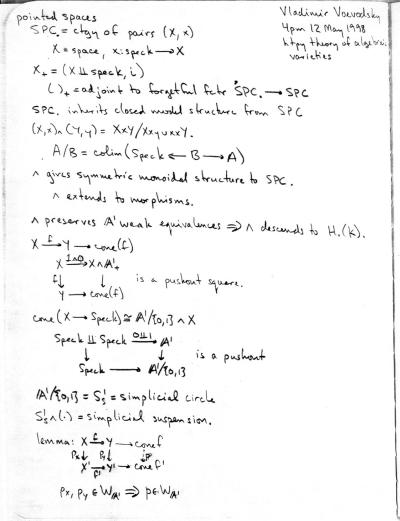 pointed spaces
Vladimir Voevodsky
4pm 12 May 1998
htpy theory of algebraic varieties
SPC. = ctgy of pairs (X, x)
X = space, x: speck → X
X₊ = (X ⨿ speck, i)
( )₊ = adjoint to forgetful fctr SPC. → SPC
SPC. inherits closed model structure from SPC
(X,x)∧(Y,y) = X×Y/X×y∪x×Y.
A/B = colim(Speck ← B → A)
∧ gives symmetric monoidal structure to SPC.
∧ extends to morphisms.
∧ preserves A¹ weak equivalences ⇒ ∧ descends to H.(k).
X →f Y → cone(f)
X →1∧0 X∧A¹₊
f↓ ↓ is a pushout square.
Y → cone(f)
cone(X → Speck) ≅ A¹/{0,1} ∧ X
Speck ⨿ Speck →0⨿1 A¹
↓ ↓ is a pushout
Speck → A¹/{0,1}
A¹/{0,1} = S¹ₛ = simplicial circle
S¹ₛ∧(·) = simplicial suspension.
lemma: X →f Y → cone f
pₓ↓ p_Y↓ ↓p
X' →f' Y' → cone f'
pₓ, p_Y ∈ W_A¹ ⇒ p ∈ W_A¹